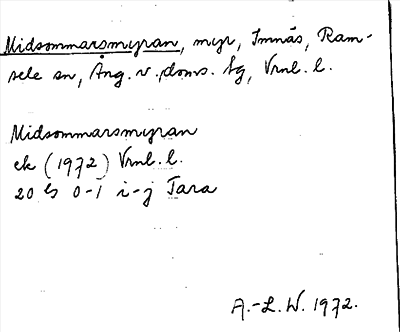 Midsommarsmyran, myr, Imnäs, Ram-
sele sn, Ång. v. doms. tg, Vrnl. l.
Midsommarsmyran
ek (1972) Vrnl. l.
20 G 0-1 i-j Tara
A.-L.W. 1972.